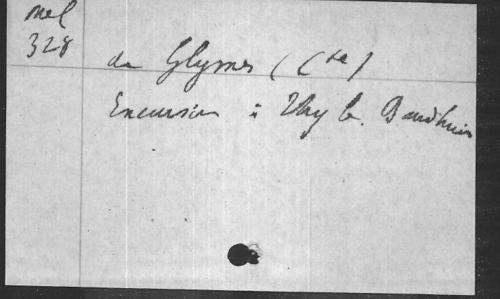 Mel
328
de Glymes (Cte)
Excursion à Thy le Baudhuin